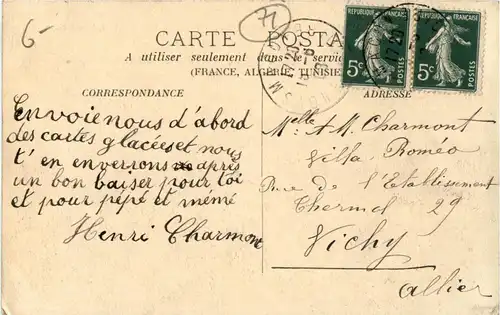 6-
72
CARTE POSTA
A utiliser seulement dans le servic
(FRANCE, ALGÉRIE, TUNISIE
RÉPUBLIQUE FRANÇAISE
5c POSTES
RÉPUBLIQUE FRANÇAISE
5c POSTES
CORRESPONDANCE
Envoie nous d'abord
des cartes glacées et nous
t'en enverrons après
un bon baiser pour toi
et pour pépé et mémé
Henri Charmont
ADRESSE
Melle A.M. Charmont
Villa Roméo
Rue de l'Etablissement
Thermal 29
Vichy
Allier